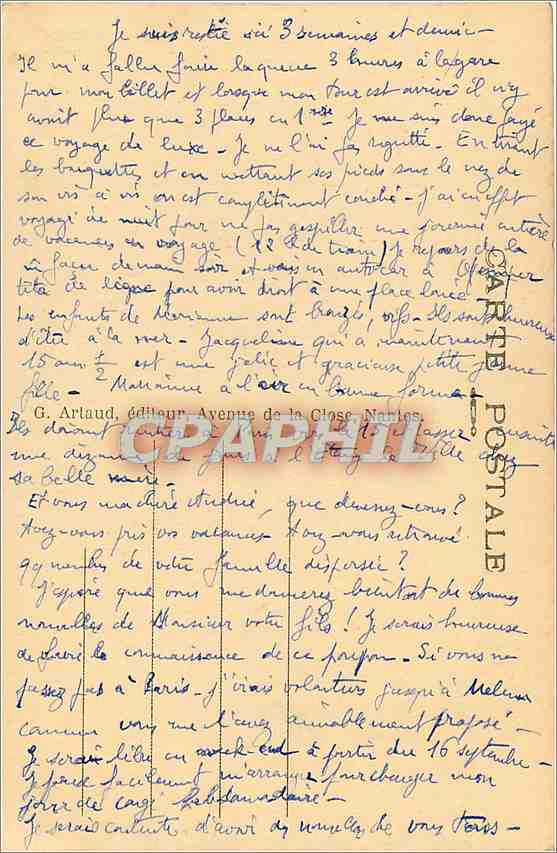 Je suis resté ici 3 semaines et demie -
Il m'a fallu faire la queue 3 heures à la gare
pour mon billet et lorsque mon tour est arrivé il n'y
avait plus que 3 places en 1ère. Je me suis donc payé
ce voyage de luxe - Je ne l'ai pas regretté - En tirant
les banquettes et en mettant ses pieds sous le nez de
son vis à vis on est complètement couché - J'ai en effet
voyagé de nuit pour ne pas gaspiller une journée entière
de vacances en voyage (12 h de train) Je repars de la
façon demain soir et vais en autocar à
tête de ligne pour avoir droit à une place
Les enfants de Marianne sont bronzés, Ils sont heureux
d'être à la mer - Jacqueline qui a maintenant
15 ans 1/2 est une jolie et gracieuse petite jeune
fille - Marianne a l'air en bonne forme -
G. Artaud, éditeur, Avenue de la Close, Nantes.
Ils doivent rentrer à Paris vers le 15 et passer ensuite
une dizaine de jours à chez
sa belle mère -
CPAPHIL
CARTE POSTALE
Et vous ma chère Andrée, que devenez-vous ?
Avez-vous pris vos vacances - Avez-vous retrouvé
qq membres de votre famille dispersée ?
J'espère que vous me donnerez bientôt de bonnes
nouvelles de Monsieur votre fils ! Je serais heureuse
de faire la connaissance de ce poupon - Si vous ne
passez pas à Paris - j'irais volontiers jusqu'à Melun
comme vous me l'avez aimablement proposé -
Je serai libre en week end à partir du 16 septembre -
Je peux facilement m'arranger pour changer mon
jour de congé hebdomadaire -
Je serais contente d'avoir des nouvelles de vous tous -